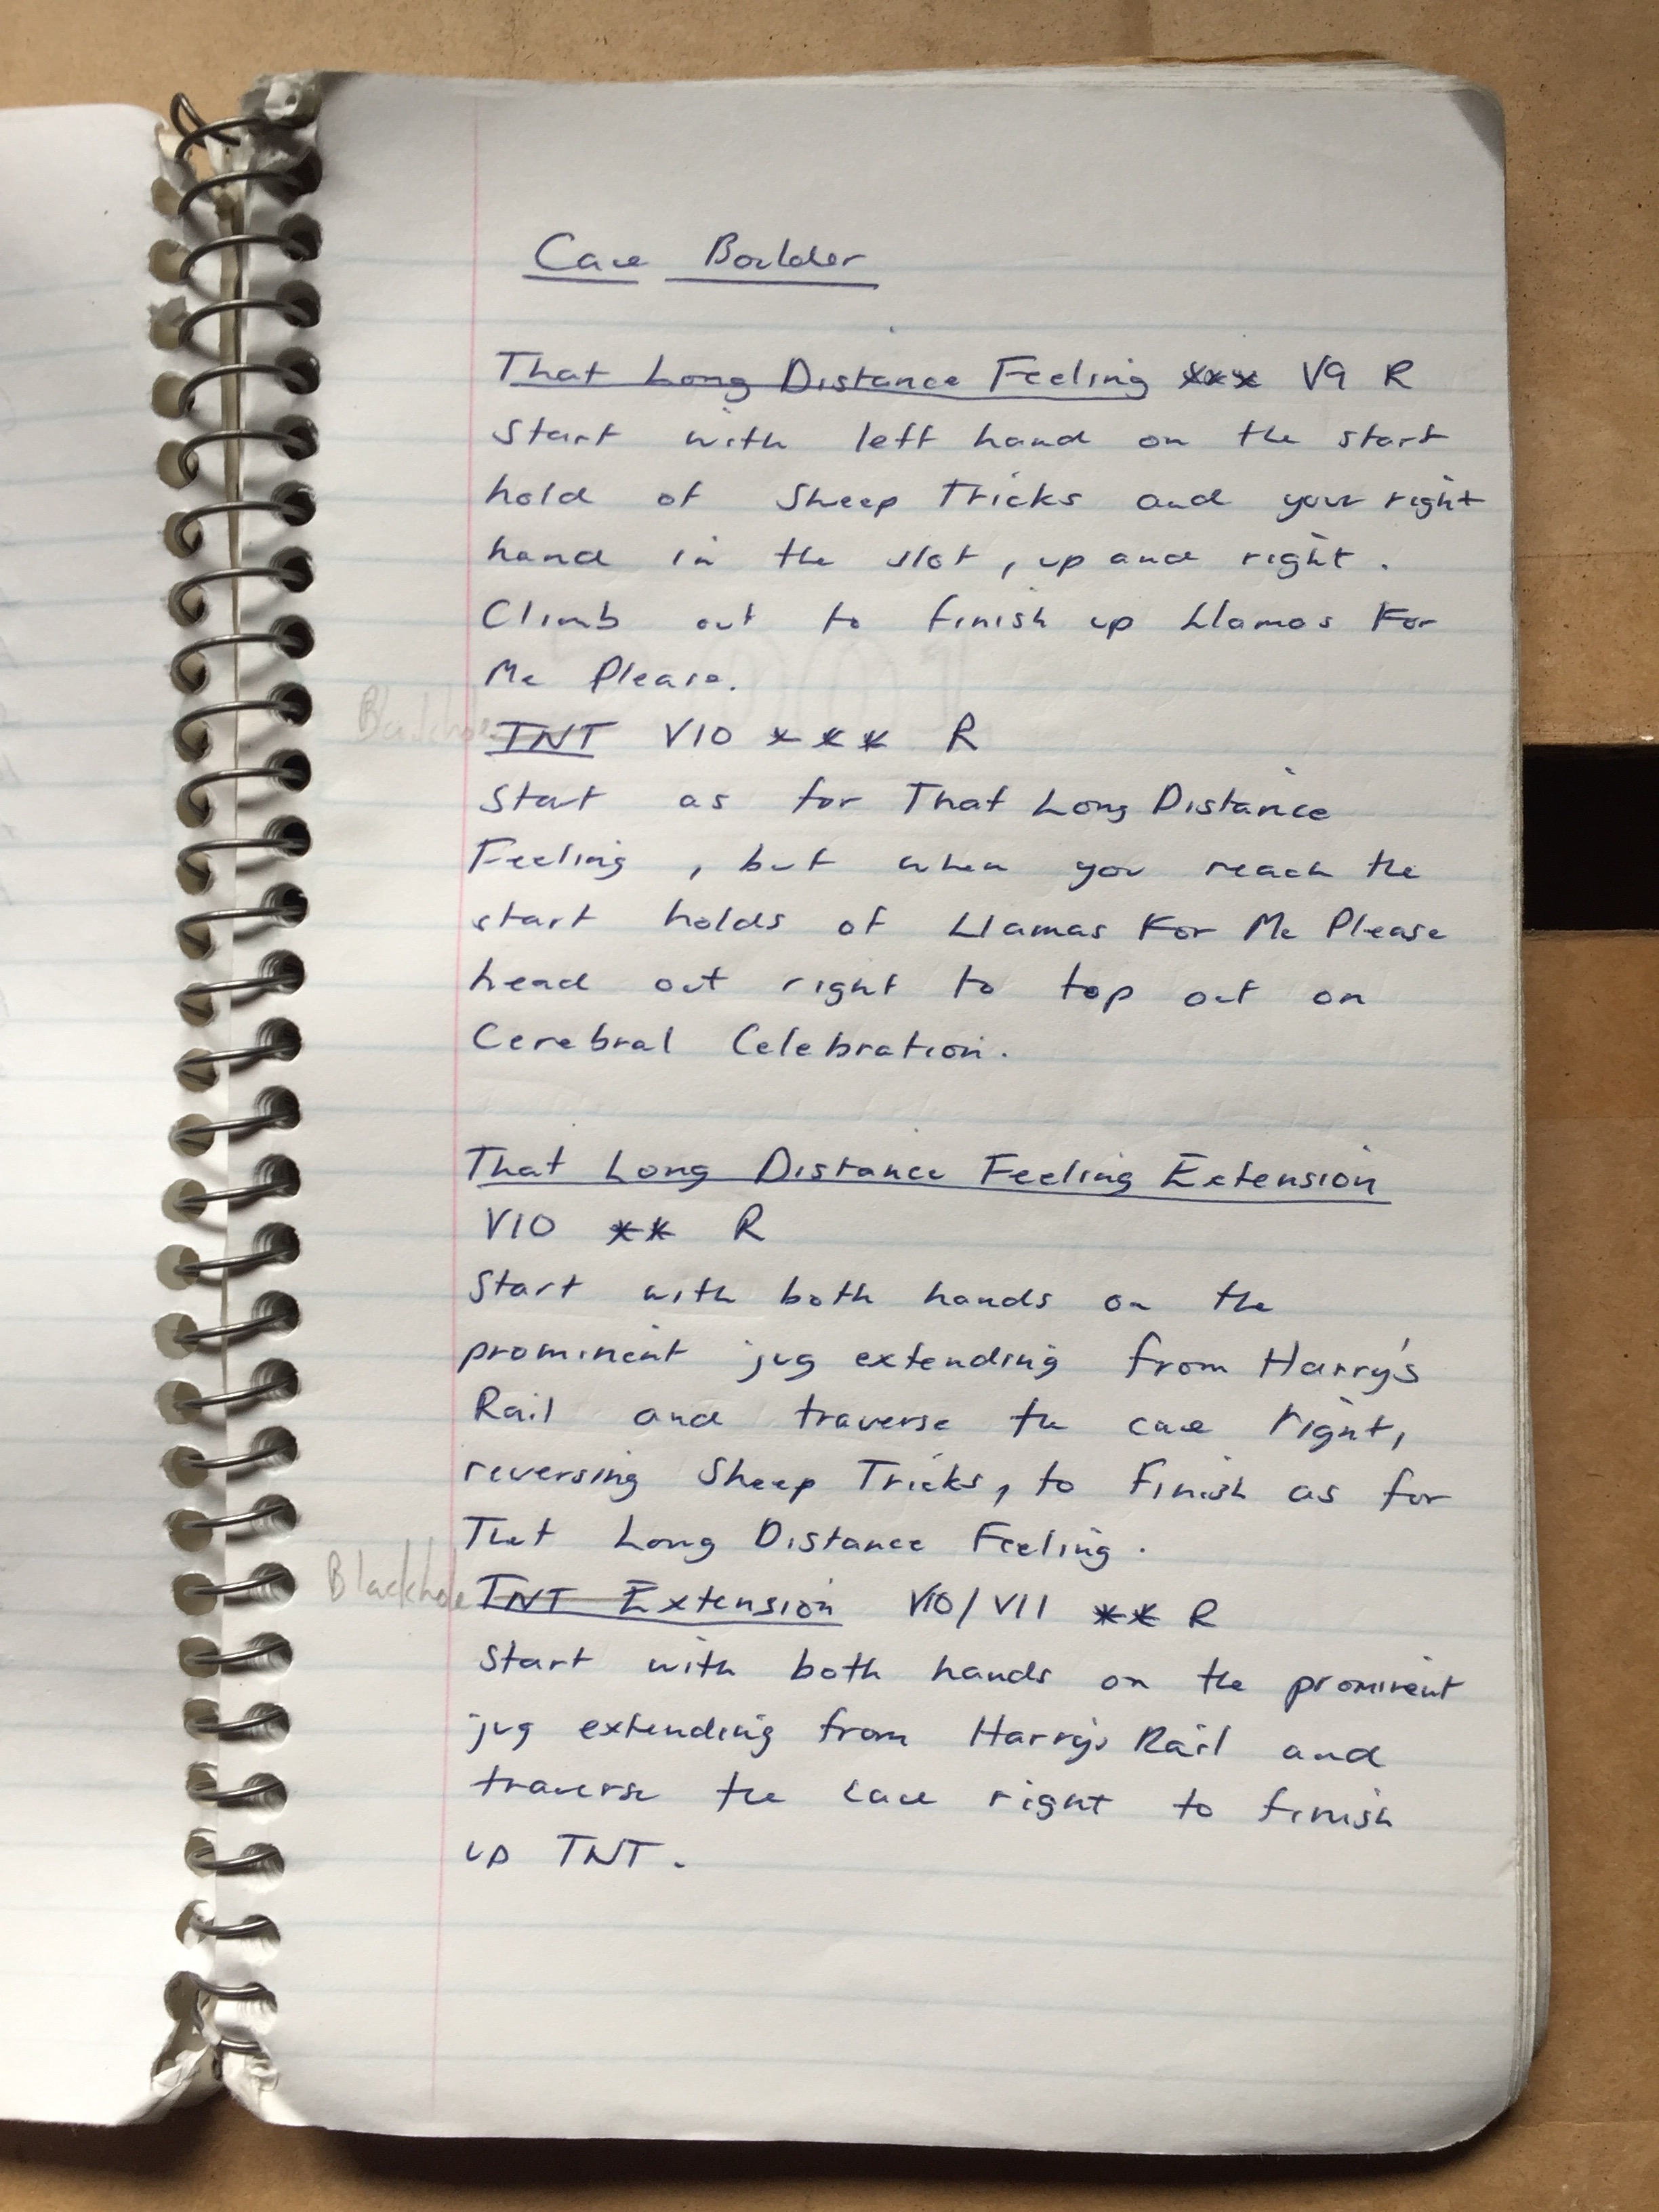 Cave Boulder
That Long Distance Feeling *** V9 R
Start with left hand on the start
hold of Sheep Tricks and your right
hand in the slot, up and right.
Climb out to finish up Llamas For
Me Please.
Blackhole TNT V10 *** R
Start as for That Long Distance
Feeling, but when you reach the
start holds of Llamas For Me Please
head out right to top out on
Cerebral Celebration.
That Long Distance Feeling Extension
V10 ** R
Start with both hands on the
prominent jug extending from Harry's
Rail and traverse the cave right,
reversing Sheep Tricks, to finish as for
That Long Distance Feeling.
Blackhole TNT Extension V10/V11 ** R
Start with both hands on the prominent
jug extending from Harry's Rail and
traverse the cave right to finish
up TNT.